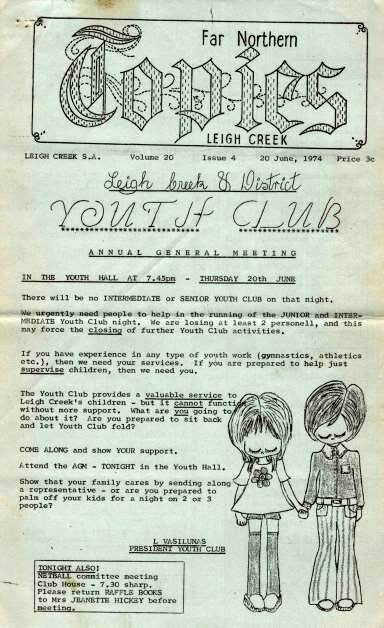 Far Northern
Topics
LEIGH CREEK
LEIGH CREEK S.A. Volume 20 Issue 4 20 June, 1974 Price 3c
Leigh Creek & District
YOUTH CLUB
ANNUAL GENERAL MEETING
IN THE YOUTH HALL AT 7.45pm - THURSDAY 20th JUNE
There will be no INTERMEDIATE or SENIOR YOUTH CLUB on that night.
We urgently need people to help in the running of the JUNIOR and INTER-
MEDIATE Youth Club night. We are losing at least 2 personell, and this
may force the closing of further Youth Club activities.
If you have experience in any type of youth work (gymnastics, athletics
etc.), then we need your services. If you are prepared to help just
supervise children, then we need you.
The Youth Club provides a valuable service to
Leigh Creek's children - but it cannot function
without more support. What are you going to
do about it? Are you prepared to sit back
and let Youth Club fold?
COME ALONG and show YOUR support.
Attend the AGM - TONIGHT in the Youth Hall.
Show that your family cares by sending along
a representative - or are you prepared to
palm off your kids for a night on 2 or 3
people?
L VASILUNAS
PRESIDENT YOUTH CLUB
TONIGHT ALSO!
NETBALL committee meeting
Club House - 7.30 sharp.
Please return RAFFLE BOOKS
to Mrs JEANETTE HICKEY before
meeting.